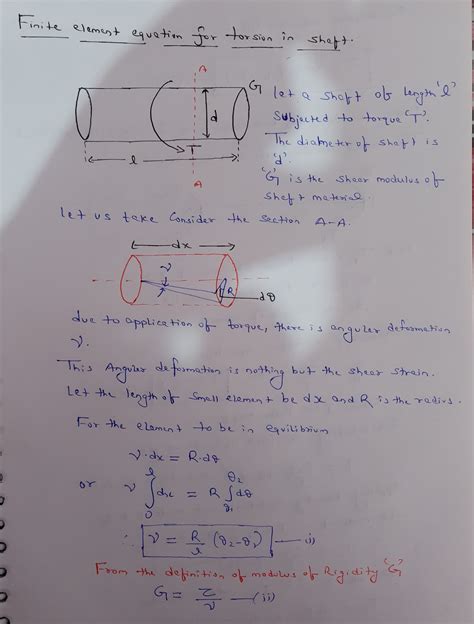 Finite element equation for torsion in shaft.
A
G
d
T
l
A
let a shaft of length 'l'
Subjected to torque 'T'.
The diameter of shaft is
'd'.
'G' is the shear modulus of
shaft material.
let us take Consider the section A-A.
dx
ν
R
dθ
due to application of torque, there is angular deformation
ν.
This Angular deformation is nothing but the shear strain.
Let the length of small element be dx and R is the radius.
For the element to be in equilibrium
ν·dx = R·dθ
or ν ∫₀ˡ dx = R ∫_θ₁^θ₂ dθ
∴ ν = R/l (θ₂-θ₁) — i)
From the definition of modulus of Rigidity 'G'
G = τ/ν — (ii)